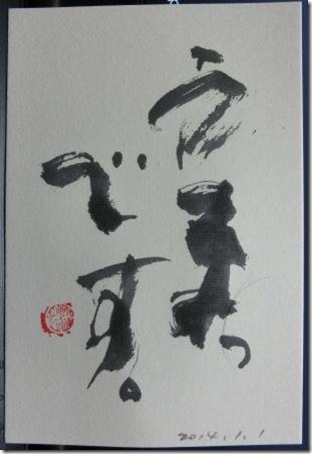 うま
です。
2014.1.1